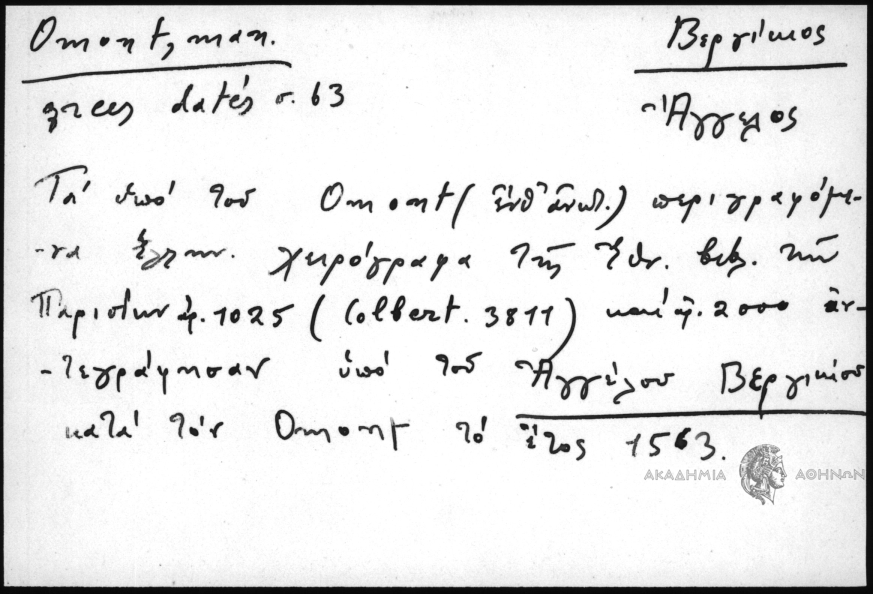 Omont, man. Βεργίκιος
grecs datés σ. 63 Ἄγγελος
Τά ὑπό τοῦ Omont (ἔνθ' ἀνωτ.) περιγραφόμε-
-να ἕλλην. χειρόγραφα τῆς Ἐθν. βιβλ. τῶν
Παρισίων ἀρ. 1025 (Colbert. 3811) καί ἀρ. 2000 ἀν-
-τεγράφησαν ὑπό τοῦ Ἀγγέλου Βεργικίου
κατά τόν Omont τό ἔτος 1563.
ΑΚΑΔΗΜΙΑ ΑΘΗΝΩΝ